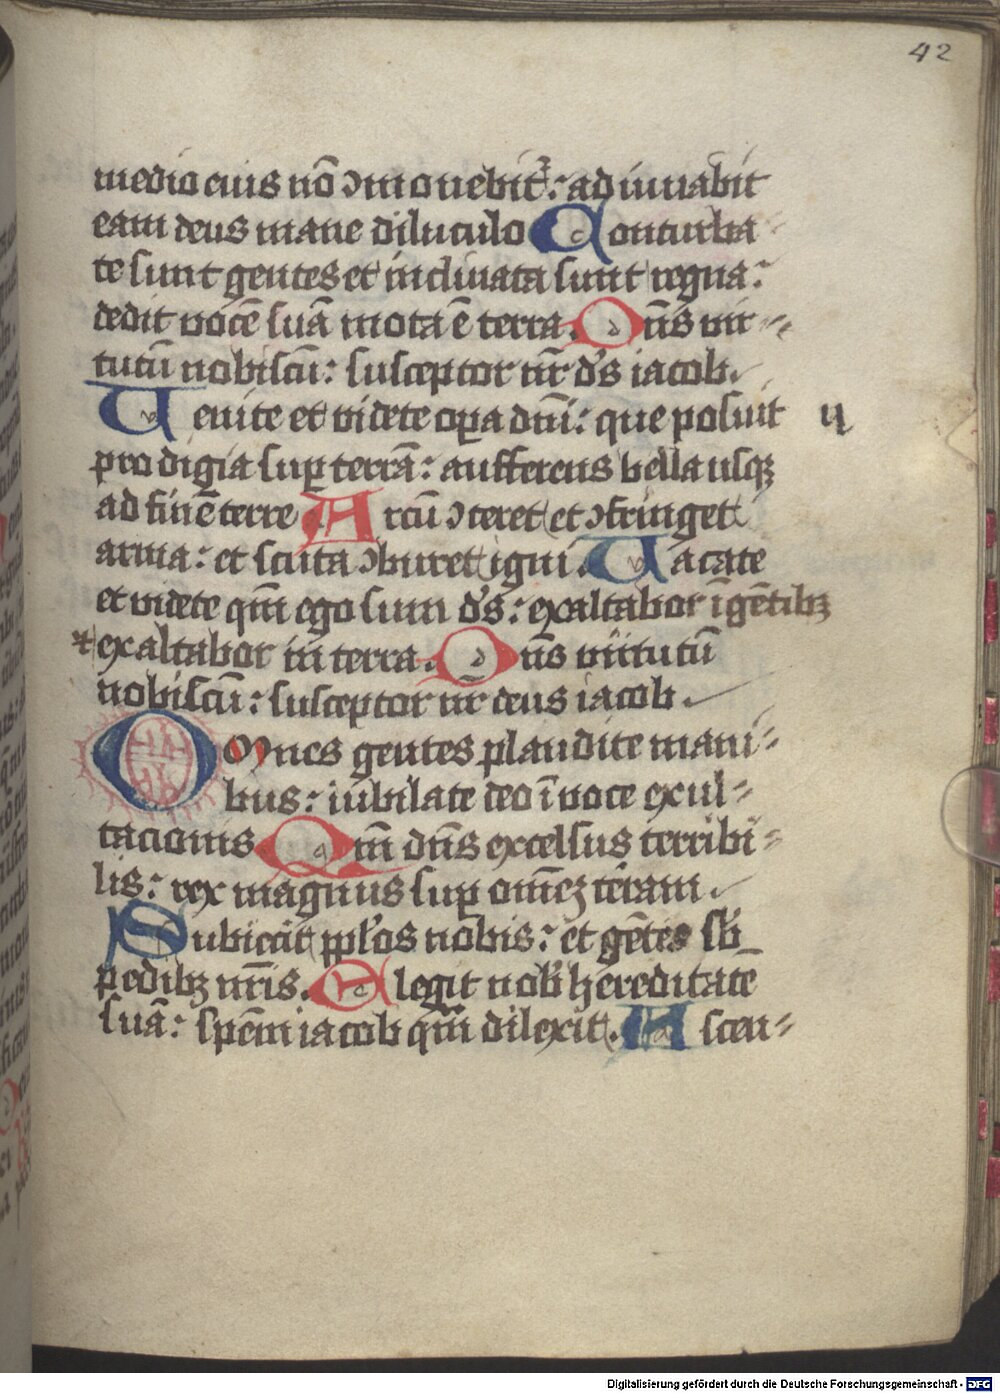 42
medio eius nō ɔmouebit̃: adiuuabit
eam deus mane diluculo Conturba-
te sunt gentes et inclinata sunt regna:
dedit vocē suā mota ē terra. Dn̄s vir-
tutū nobiscū: susceptor nr̄ ds̄ iacob.
Uenite et videte oꝑa dn̄i: que posuit
prodigia suꝑ terrā: aufferens bella usqꝫ
ad finē terre Arcū ɔteret et ɔfringet
arma: et scuta ɔburet igni. Uacate
et videte qm̄ ego sum ds̄: exaltabor ī gētibꝫ
exaltabor in terra. Dn̄s virtutū
nobiscū: susceptor nr̄ deus iacob.
Omnes gentes plaudite mani-
bus: iubilate deo ī voce exul-
tacionis. Qm̄ dn̄s excelsus terribi-
lis: rex magnus suꝑ omēꝫ teram.
Subiecit ppl̄os nobis: et gētes sb̄
pedibꝫ nr̄is. Elegit nob̄ hereditatē
suā: spēm iacob qm̄ dilexit. Ascen-
Digitalisierung gefördert durch die Deutsche Forschungsgemeinschaft - DFG